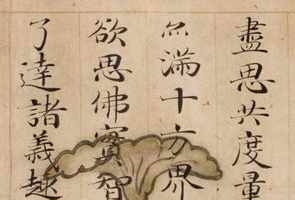 盡思共度量
亦滿十方界
欲思佛實智
了達諸義趣